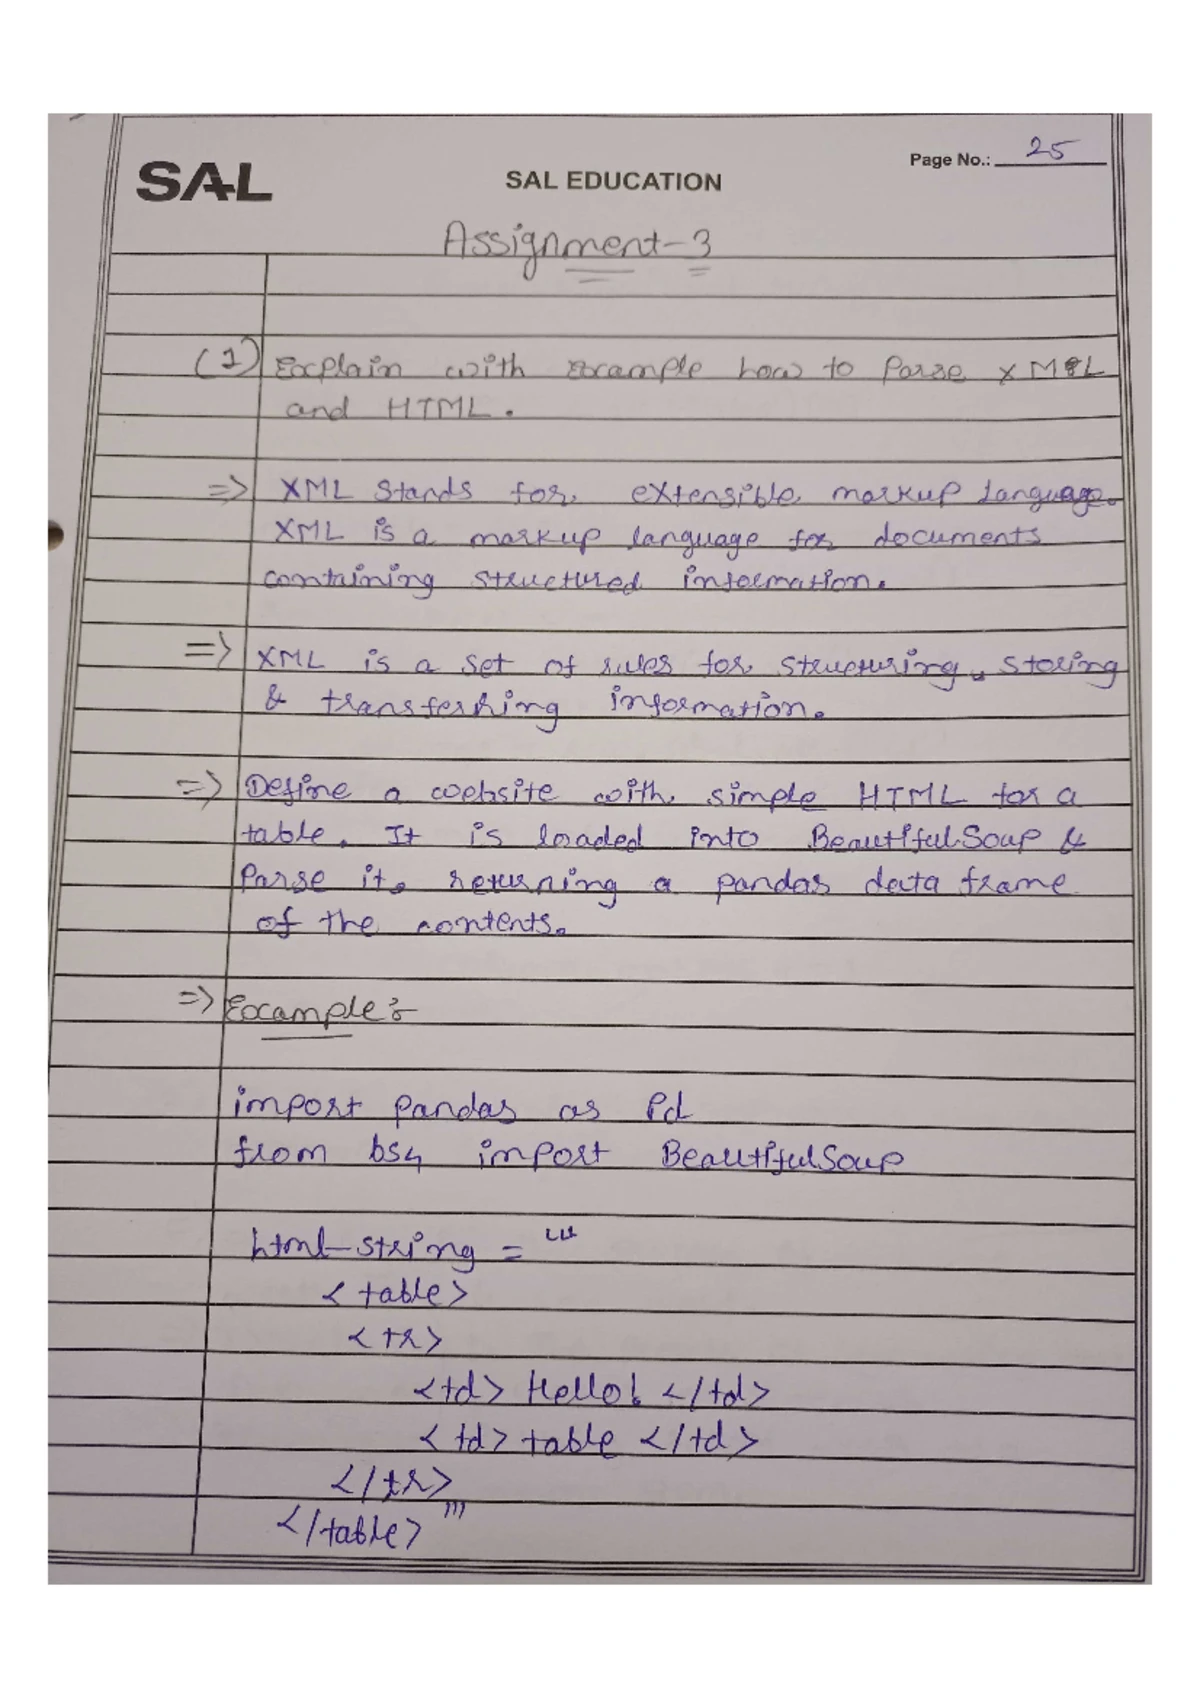 SAL
SAL EDUCATION
Page No.: 25
Assignment-3
(1) Explain with Example how to Parse XML
and HTML.
=> XML Stands for eXtensible markup Language.
XML is a markup language for documents
containing structured information.
=> XML is a set of rules for structuring, storing
& transferring information.
=> Define a website with simple HTML for a
table. It is loaded into BeautifulSoup &
Parse it, returning a pandas data frame
of the contents.
=> Example:-
import pandas as Pd
from bs4 import BeautifulSoup
html-string = '''
<table>
<tr>
<td> Hello! </td>
<td> table </td>
</tr>
</table> '''